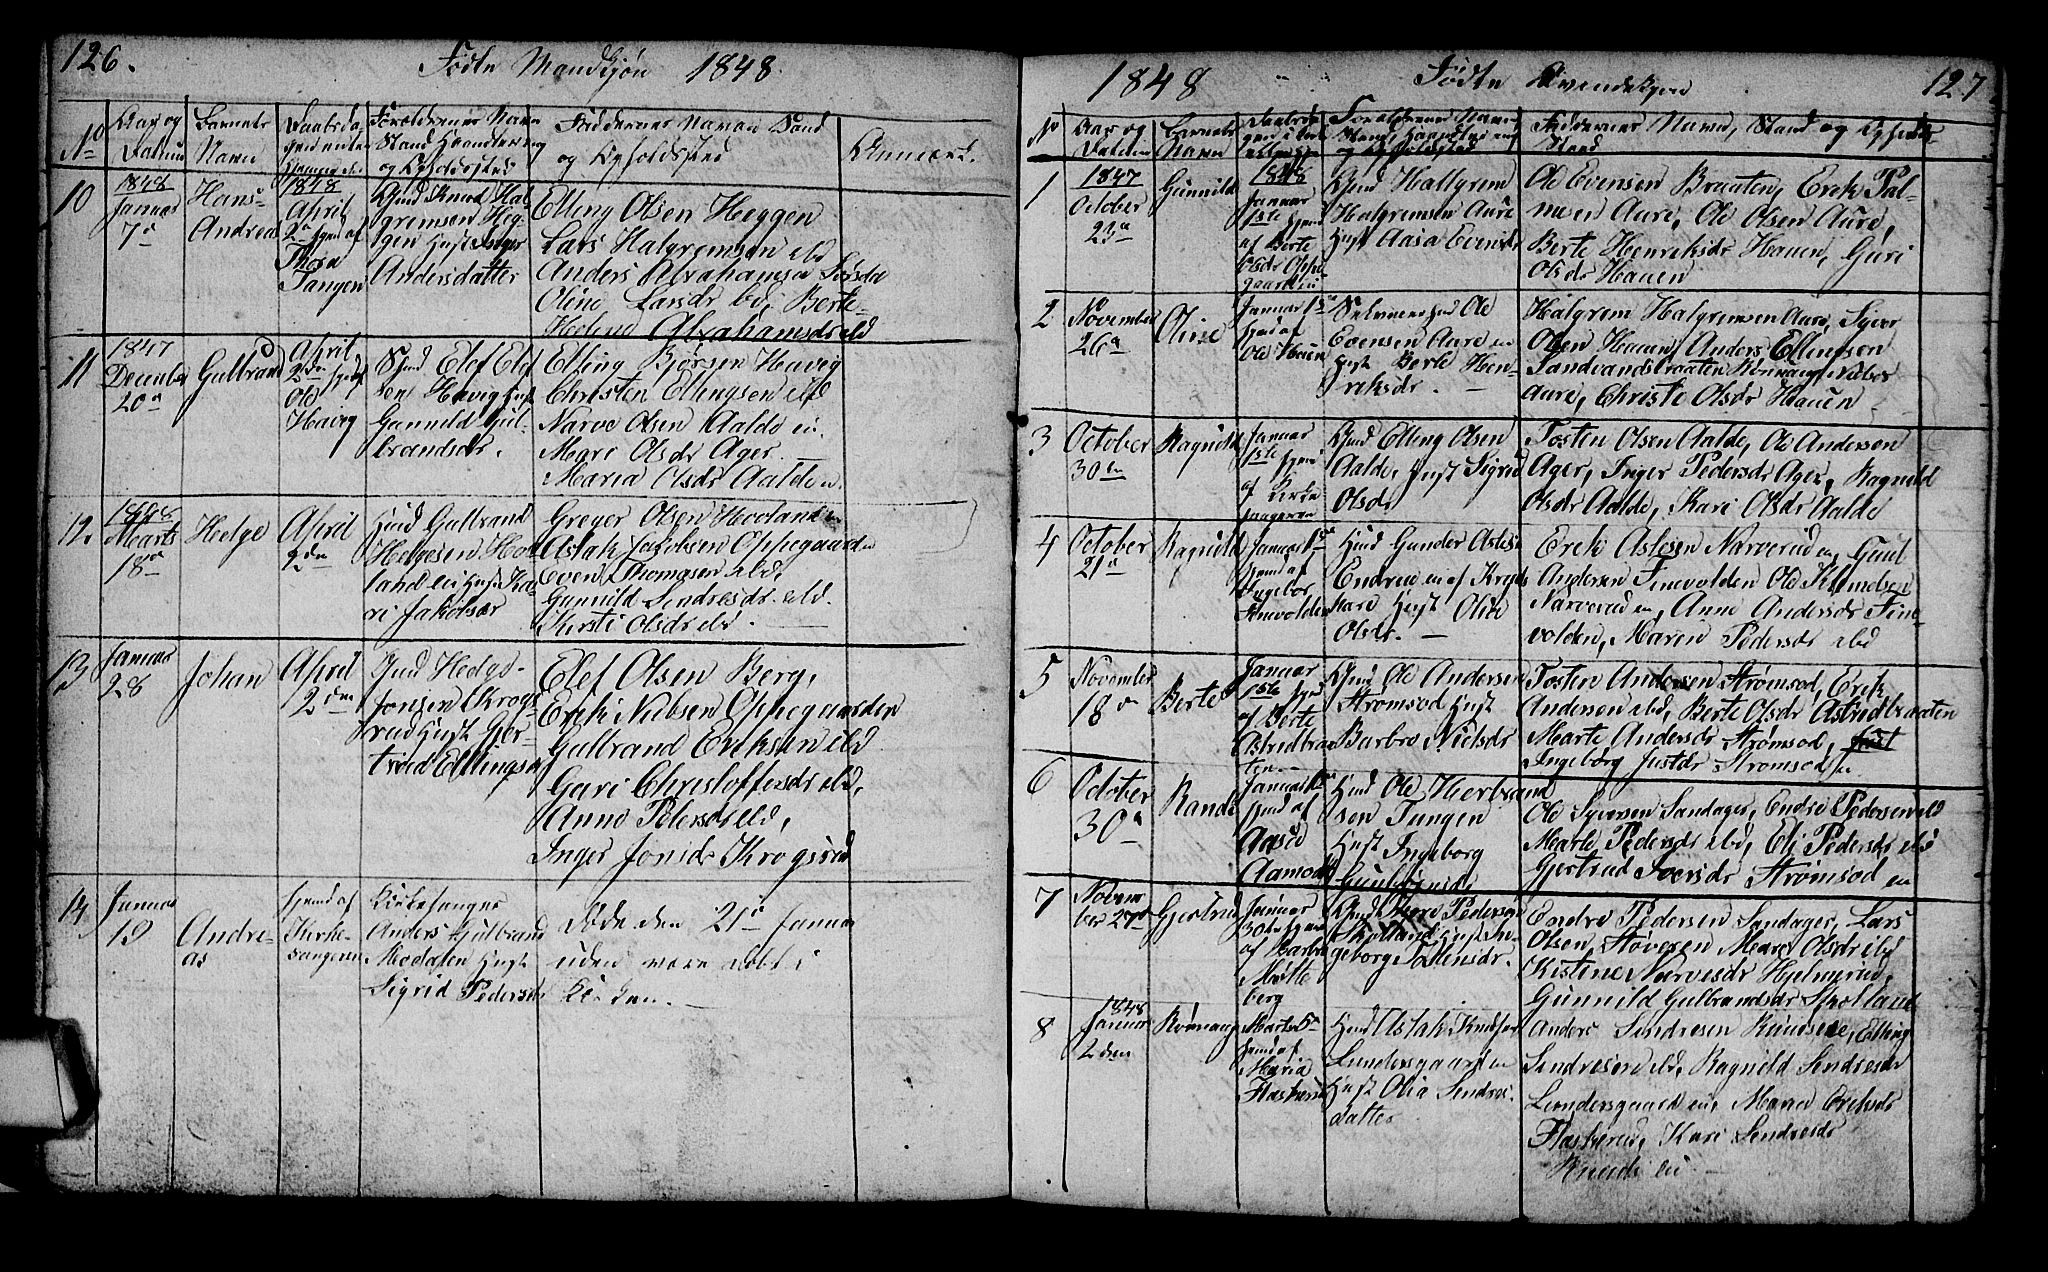 126.
Fødte Mandkjøn 1848.
No
Aar og Datum
Barnets Navn
Daabsda
gen enten
Forældrenes Navn
Stand Haandtering
og Opholdssted
Faddernes Navn Stand
og Opholdsted
Anmærk.
10
1848
Januar
7de
Hans
Andrea
1848
April
2den hjem af
Thora
Tangen
Gmd Knud Hal
gremsen Heg
gen Hust Inger
Andersdatter
Elling Olsen Heggen
Lars Halgremsen ibd
Anders Abrahamsen
Oline Larsdr ibd, Berte
Helene Abrahamsdr ibd
11
1847
December
20de
Gulbrand
April
2den hjemd af
Ole
Havig
Elef Elef
sen Havig Hust
Gunnild Gul-
brandsdr.
Elling Bjørsen Havig
Christen Ellingsen ibd
Narve Olsen Aalde ei.
Mari Olsdr Ager.
Maria Olsdr Aalde
12.
1848
Marts
18de
Helge
April
2den
Gmd Gulbrand
Helgesen Hov
land ei Hust Ka
ri Jakobsdr
Greger Olsen Hovland
Aslak Jakobsen Oppegaarden
Even Thomasen ibd,
Gunnild Sendresdr ibd.
Kersti Olsdr ibd.
13
Januar
28
Johan
April
2den
Gmd Helge
Jonsen Krogs
rud Hust Ger-
trud Ellingsdr
Elef Olsen Berg,
Erik Nielsen Oppegaarden
Gulbrand Eriksen ibd
Guri Christoffersdr ibd,
Anne Petersdr ibd,
Inger Jonsdr Krogsrud
14
Januar
19
Andre-
as
hjemd af
Kirke-
sangeren
Kirkesanger
Anders Gulbrand
Modalen Hust
Sigrid Pedersdr
Døde den 21de Januar
uden være døbt i
Kirken.
1848
Fødte Kvendekjøn
127
No
Aar og
Datum
Barnets
Navn
Forældrenes Navn
Faddernes Navn, Stand og Opholds-
Sted
1
1847
October
23de
Gunnild
1848
Januar
1ste hjemd
af Berte
Olsdr Oppe
gaarden
Gmd Hallgrem
Halgremsen Aure
Hust Aasa Evensdr
Ole Evensen Braaten, Erik Pal-
mesen Aure, Ole Olsen Aure,
Berte Henriksdr Hauen, Guri
Olsdr Hauen
2
November
26de
Oline
Januar 1ste
hjemd af
Ole Hauen
Selveier Gmd Ole
Evensen Aure
Hust Berte Hen-
riksdr.
Halgrem Halgremsen Aure, Syver
Olsen Hauen, Anders Ellingsen
Sandvandsbraaten Rønnaug Nilsdr
Aure, Christi Olsdr Hauen
3
October
30te
Ragnild
Januar
1ste hjem
af Berte
Gmd Elling Olsen
Aalde, Hust Sigrid
Olsdr
Tosten Olsen Aalde, Ole Andersen
Ager, Inger Pedersdr Ager, Ragnild
Olsdr Aalde, Kari Olsdr Aalde
4
October
21de
Ragnild
Januar 1ste
hjemd af
Ingebor
Finevolden
Gmd Gunder Aslesen
Endrud en af Kryds
hare Hust Olia
Olsdr.
Erik Aslesen Narverud en, Gul
Andersen Finevolden Ole Klemetsen
Narverud en, Anne Andersdr Fine-
volden, Maren Pedersdr ibd
5
November
18de
Berte
Januar
1ste hjemd
af Berte
Astridbraa
ten.
Gmd Ole Andersen
Strømsod Hust
Barbro Nielsdr
Tosten Andersen Strømsod, Erik
Andersen ibd, Berte Olsdr Astridbraaten
Marte Andersdr Strømsod, Just
Ingeborg Justdr Strømsod
6
October
30te
Randi
Januar 1ste
hjemd af
Aase
Aamodt
Gmd Ole Herbrand
sen Tangen
Hust Ingeborg
Gunbjørnsdr
Ole Syversen Sandager, Endre Pedersen ibd
Marte Pedersdr ibd, Eli Pedersdr ibd
Gjertrud Iversdr Strømsod en
7
Novem
ber 27de
Gjertrud
Januar
30te hjem
af Barbro
Møtte
berg
Gmd Thore Pedersen
Skolland Hust In-
geborg Torstensdr.
Endre Pedersen Sandager, Lars
Olsen, Støveren Mari Olsdr ibd
Kistine Narvesdr Hjelmerud,
Gunnild Gulbrandsdr Skolland
8
1848
Januar
2den
Rønnaug
Marts 5te
hjemd af
Maria
Flaskerud
Gmd Aslak Knudsen
Lundersgaard en
Hust Olia Sendres
datter
Anders Sendresen Rundsene, Elling
Sendresen ibd, Ragnild Sendresdr
Lundersgaard en, Maria Eriksdr
Flaskerud, Kari Sendresdr
ei